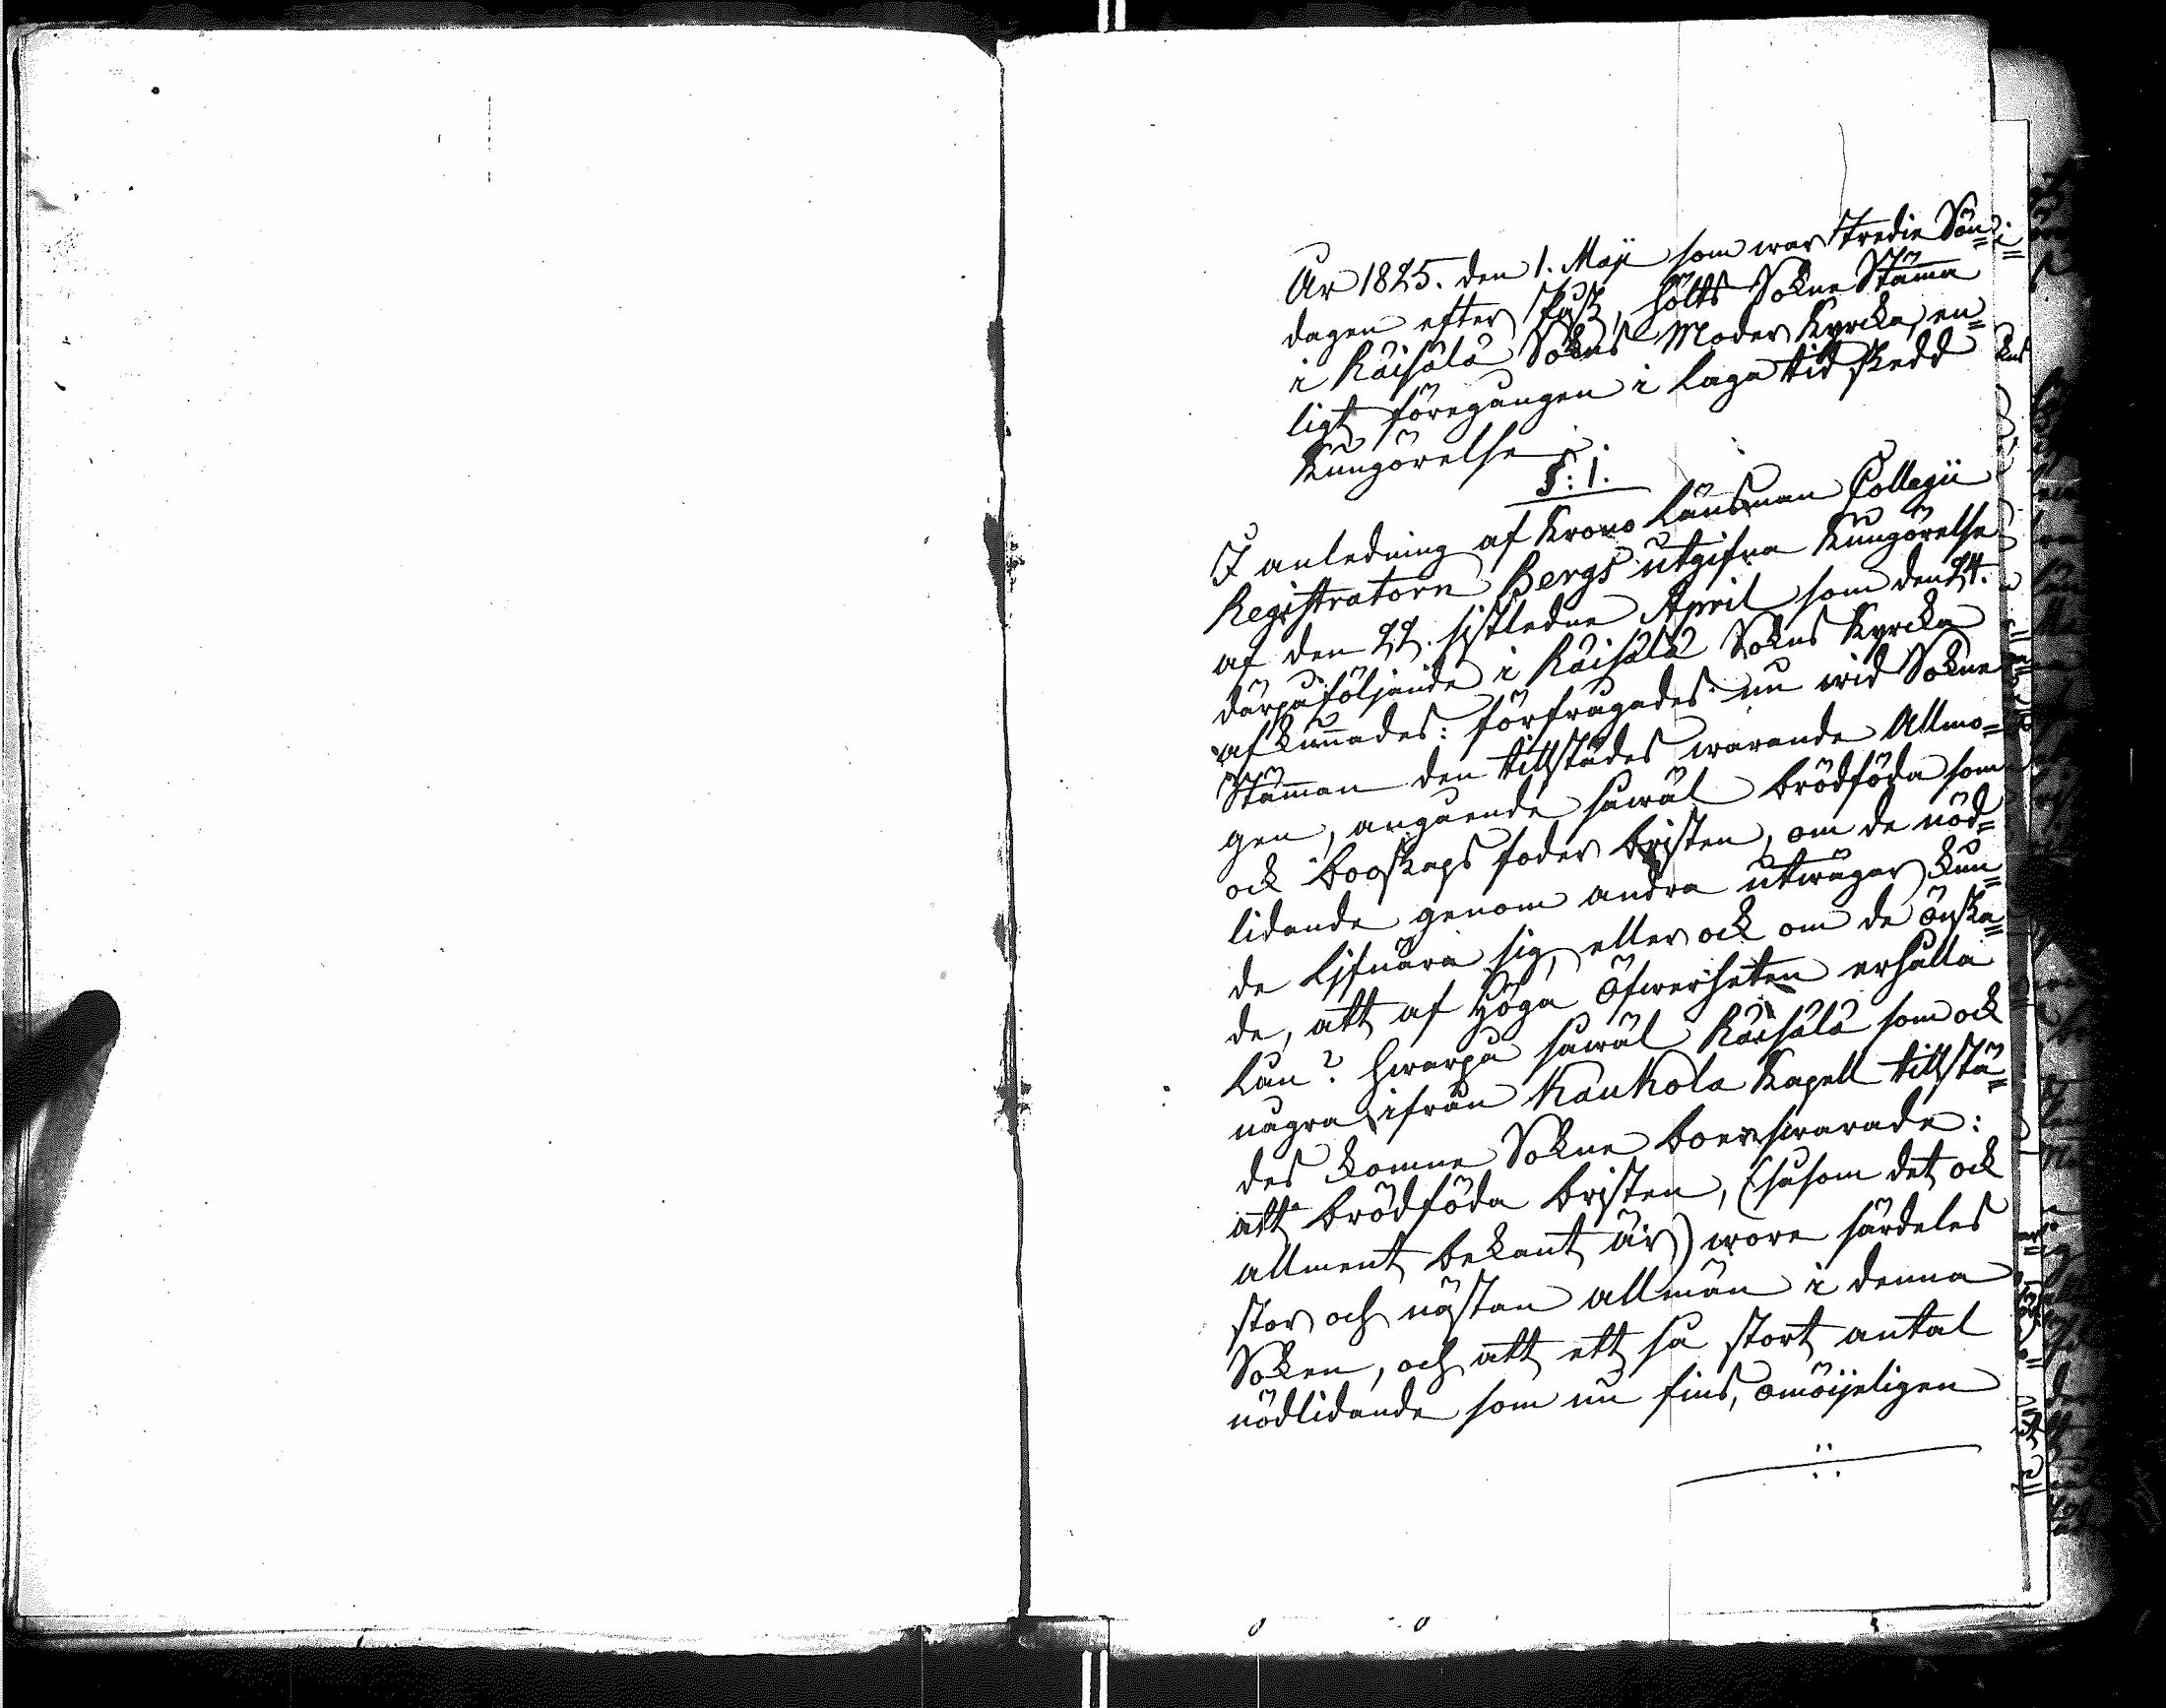 År 1825. den 1. Maji som war Tredie Sön=
dagen efter Påsk, hölts Sokne Stämma
i Räisälä Sokns Moder Kyrcka, en=
ligt föregången i laga tid skedd
Kungörelse.
§: 1.
I anledning af Krono Länsman Collegii
Registratorn Bergs utgifna Kungörelse
af den 22. sistledne April som den 24.
därpåföljande i Räisälä Sokns Kyrcka
afkunnades: förfrågades nu wid Sokne
Stämman den tillstädes warande Allmo=
gen, angående såwäl brödföda som
ock booskaps foder bristen, om de nöd=
lidande genom andra utwägar kun=
de lifnära sig, eller ock om de önska=
de, att af Höga Öfwerheten erhålla
Lån? hwarpå såwäl Räisälä som ock
några ifrån Kaukola Kapell tillstä=
des komne Sokne boer swarade:
att brödföda bristen, (såsom det ock
allment bekant är) wore särdeles
stor och nästan allmän i denna
Soken, och att ett så stort antal
nödlidande som nu fins, omöijeligen